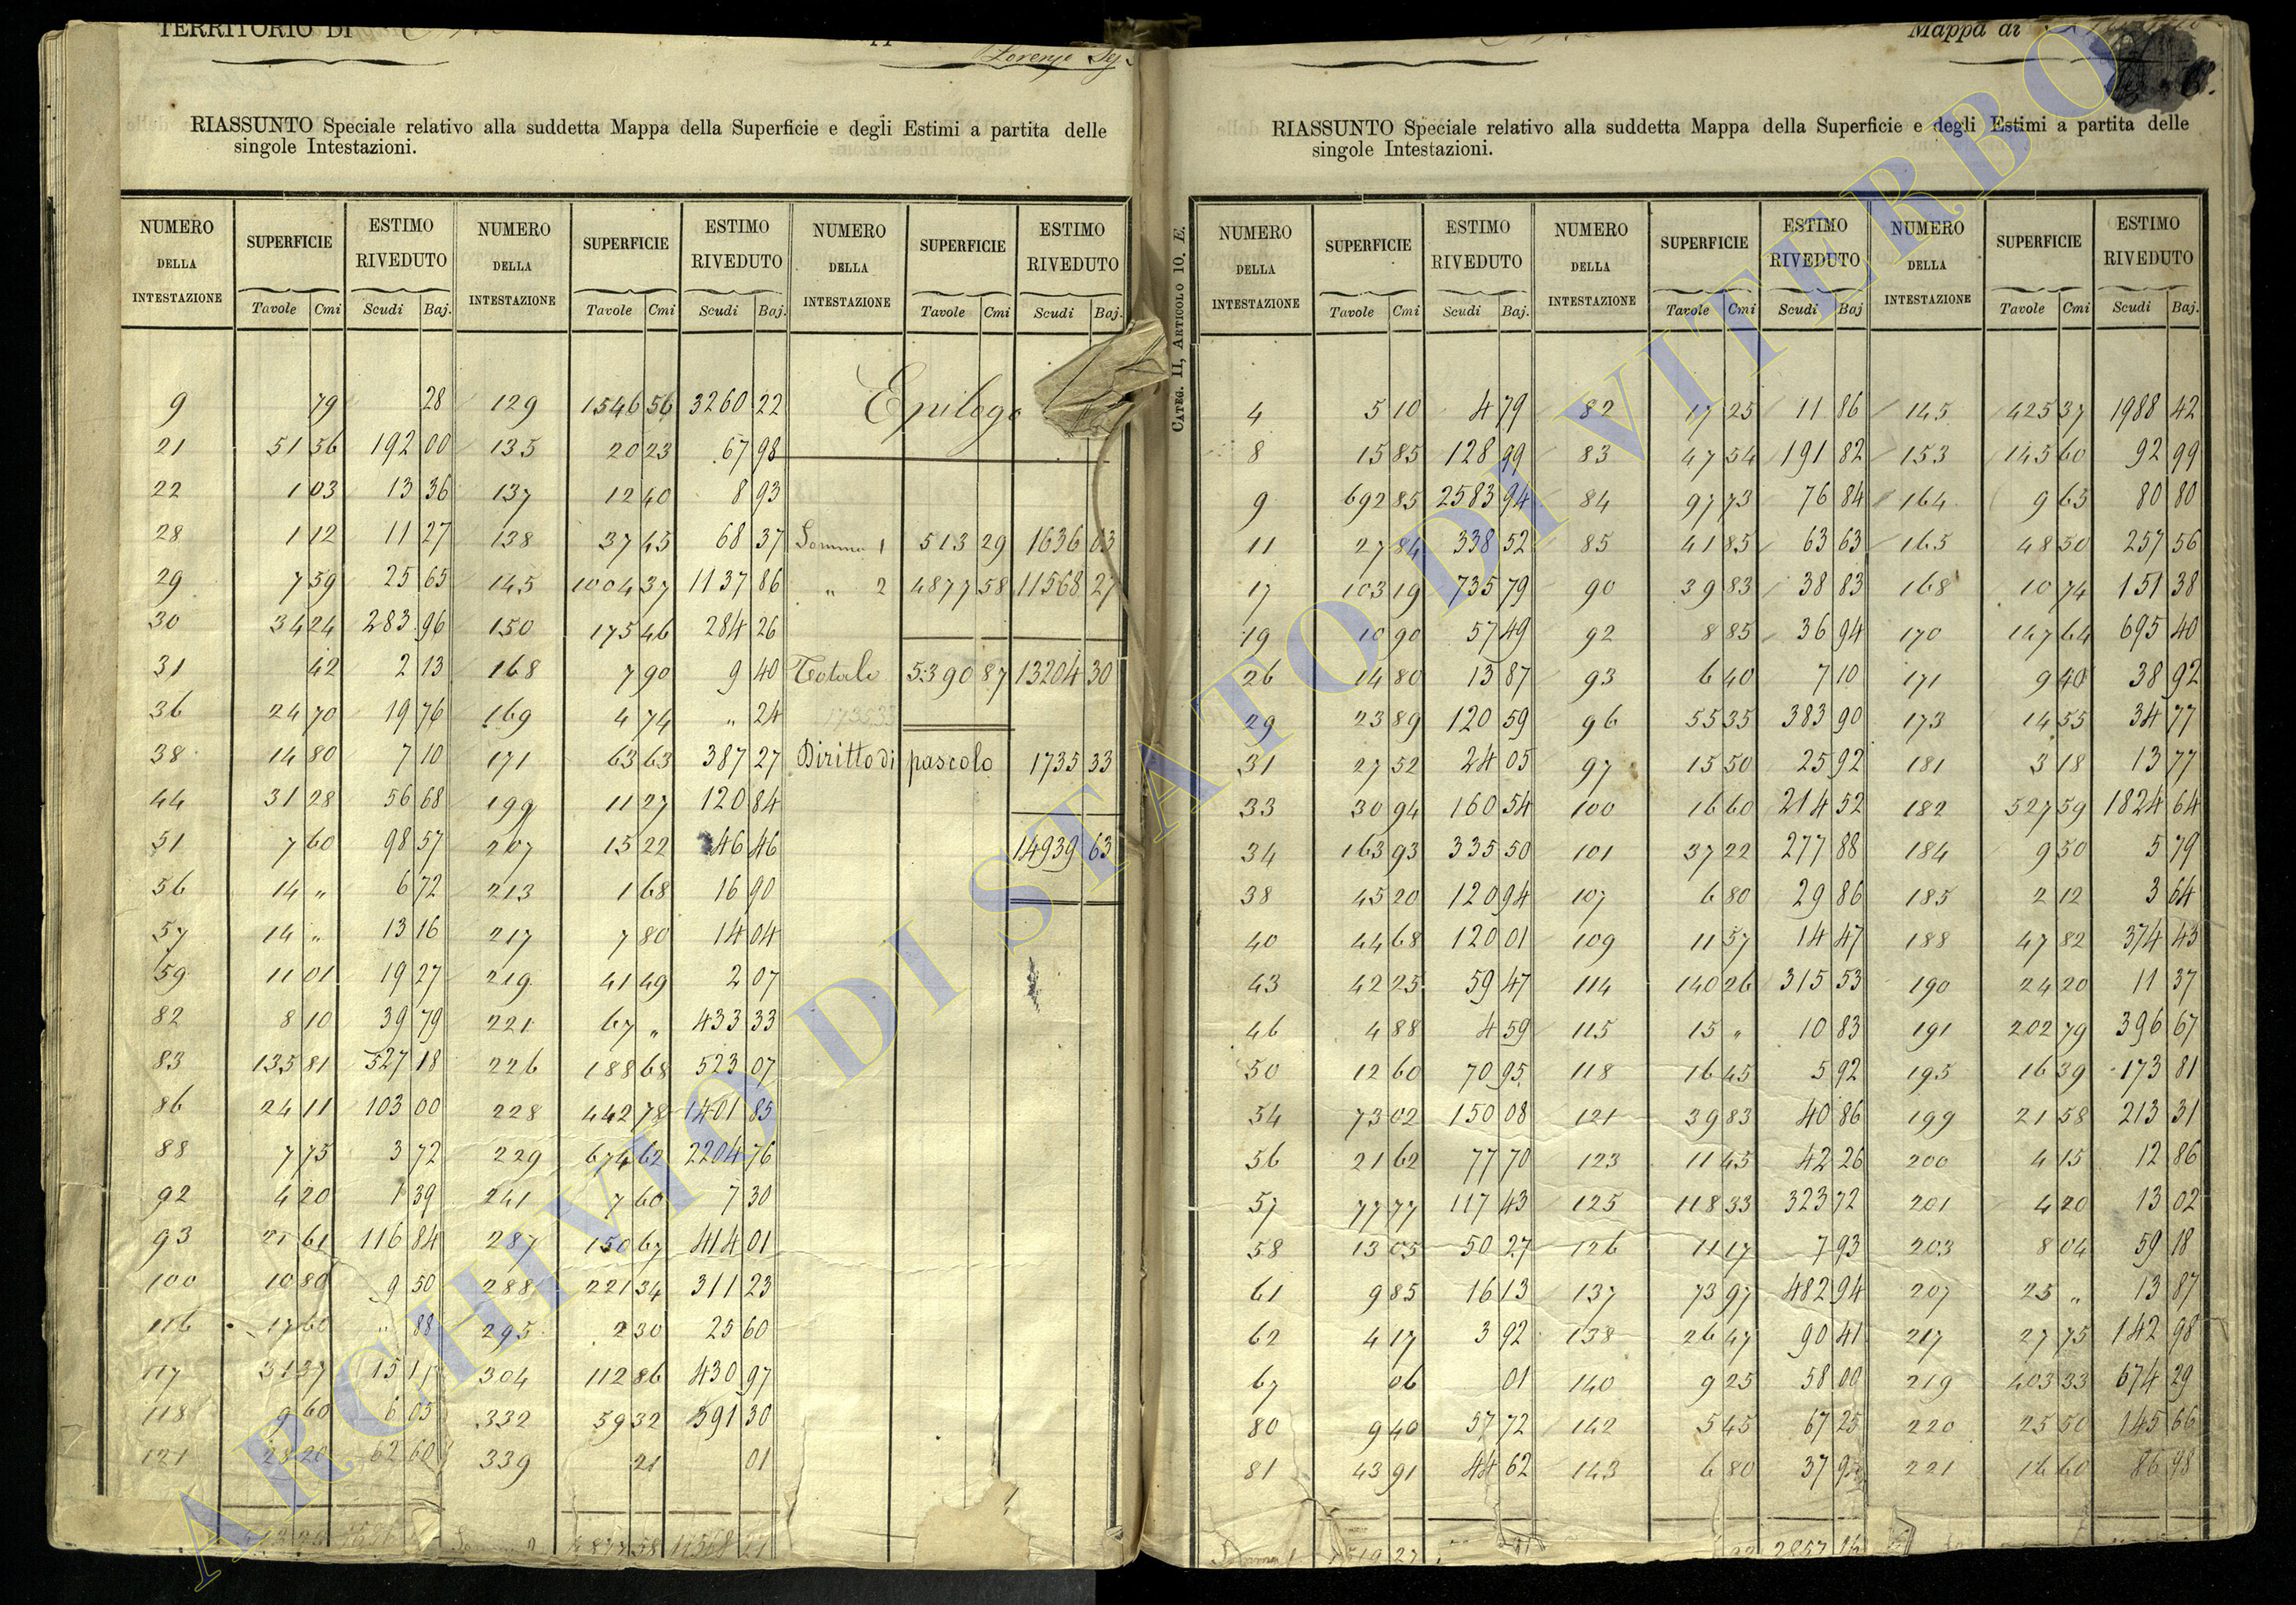 TERRITORIO DI
Lorenzo
RIASSUNTO Speciale relativo alla suddetta Mappa della Superficie e degli Estimi a partita delle
singole Intestazioni.
NUMERO DELLA INTESTAZIONE SUPERFICIE ESTIMO RIVEDUTO NUMERO DELLA INTESTAZIONE SUPERFICIE ESTIMO RIVEDUTO NUMERO DELLA INTESTAZIONE SUPERFICIE ESTIMO RIVEDUTO
Tavole Cmi Scudi Baj. Tavole Cmi Scudi Baj. Tavole Cmi Scudi Baj.
9 79 28 129 1546 56 3260 22 Epilogo
21 51 56 192 00 135 20 23 67 98
22 1 03 13 36 137 12 40 8 93
28 1 12 11 27 138 37 45 68 37 Somma 1 513 29 1636 03
29 7 59 25 65 145 1004 37 1137 86 " 2 4877 58 11568 27
30 34 24 283 96 150 175 46 284 26
31 42 2 13 168 7 90 9 40 Totale 5390 87 13204 30
36 24 70 19 76 169 4 74 " 24 1735 33
38 14 80 7 10 171 63 63 387 27 Diritto di pascolo 1735 33
44 31 28 56 68 199 11 27 120 84
51 7 60 98 57 207 15 22 46 46 14939 63
56 14 " 6 72 213 1 68 16 90
57 14 " 13 16 217 7 80 14 04
59 11 01 19 27 219 41 49 2 07
82 8 10 39 79 221 67 " 433 33
83 135 81 527 18 226 188 68 523 07
86 24 11 103 00 228 442 78 1401 85
88 7 75 3 72 229 674 62 2204 76
92 4 20 1 39 241 7 60 7 30
93 21 61 116 84 287 150 67 414 01
100 10 80 9 50 288 221 34 311 23
116 17 60 " 88 295 2 30 25 60
117 31 37 15 17 304 112 86 430 97
118 9 60 6 05 332 59 32 391 30
121 28 20 62 60 339 21 01
4877 58 11568 27
Mappa di
RIASSUNTO Speciale relativo alla suddetta Mappa della Superficie e degli Estimi a partita delle
singole Intestazioni.
CATEG. II, ARTICOLO 10. E.
NUMERO DELLA INTESTAZIONE SUPERFICIE ESTIMO RIVEDUTO NUMERO DELLA INTESTAZIONE SUPERFICIE ESTIMO RIVEDUTO NUMERO DELLA INTESTAZIONE SUPERFICIE ESTIMO RIVEDUTO
Tavole Cmi Scudi Baj. Tavole Cmi Scudi Baj Tavole Cmi Scudi Baj.
4 5 10 4 79 82 17 25 11 86 145 425 37 1988 42
8 15 85 128 99 83 47 54 191 82 153 145 60 92 99
9 692 85 2583 94 84 97 73 76 84 164 9 63 80 80
11 27 84 338 52 85 41 85 63 63 165 48 50 257 56
17 103 19 735 79 90 39 83 38 83 168 10 74 151 38
19 10 90 57 49 92 8 85 36 94 170 147 64 695 40
26 14 80 13 87 93 6 40 7 10 171 9 40 38 92
29 23 89 120 59 96 55 35 383 90 173 14 55 34 77
31 27 52 24 05 97 15 50 25 92 181 3 18 13 77
33 30 94 160 54 100 16 60 214 52 182 527 59 1824 64
34 163 93 335 50 101 37 22 277 88 184 9 50 5 79
38 45 20 120 94 107 6 80 29 86 185 2 12 3 64
40 44 68 120 01 109 11 57 14 47 188 47 82 374 43
43 42 25 59 47 114 140 26 315 53 190 24 20 11 37
46 4 88 4 59 115 15 " 10 83 191 202 79 396 67
50 12 60 70 95 118 16 45 5 92 195 16 39 173 81
54 73 02 150 08 121 39 83 40 86 199 21 58 213 31
56 21 62 77 70 123 11 45 42 26 200 4 15 12 86
57 77 77 117 43 125 118 33 323 72 201 4 20 13 02
58 13 05 50 27 126 11 17 7 93 203 8 04 59 18
61 9 85 16 13 137 73 97 482 94 207 25 " 13 87
62 4 17 3 92 138 26 47 90 41 217 27 75 142 98
67 06 01 140 9 25 58 00 219 403 33 674 29
80 9 40 57 72 142 5 45 67 25 220 25 50 145 66
81 43 91 44 62 143 6 80 37 221 16 60 86 98
1519 27 2857 16
ARCHIVIO DI STATO DI VITERBO